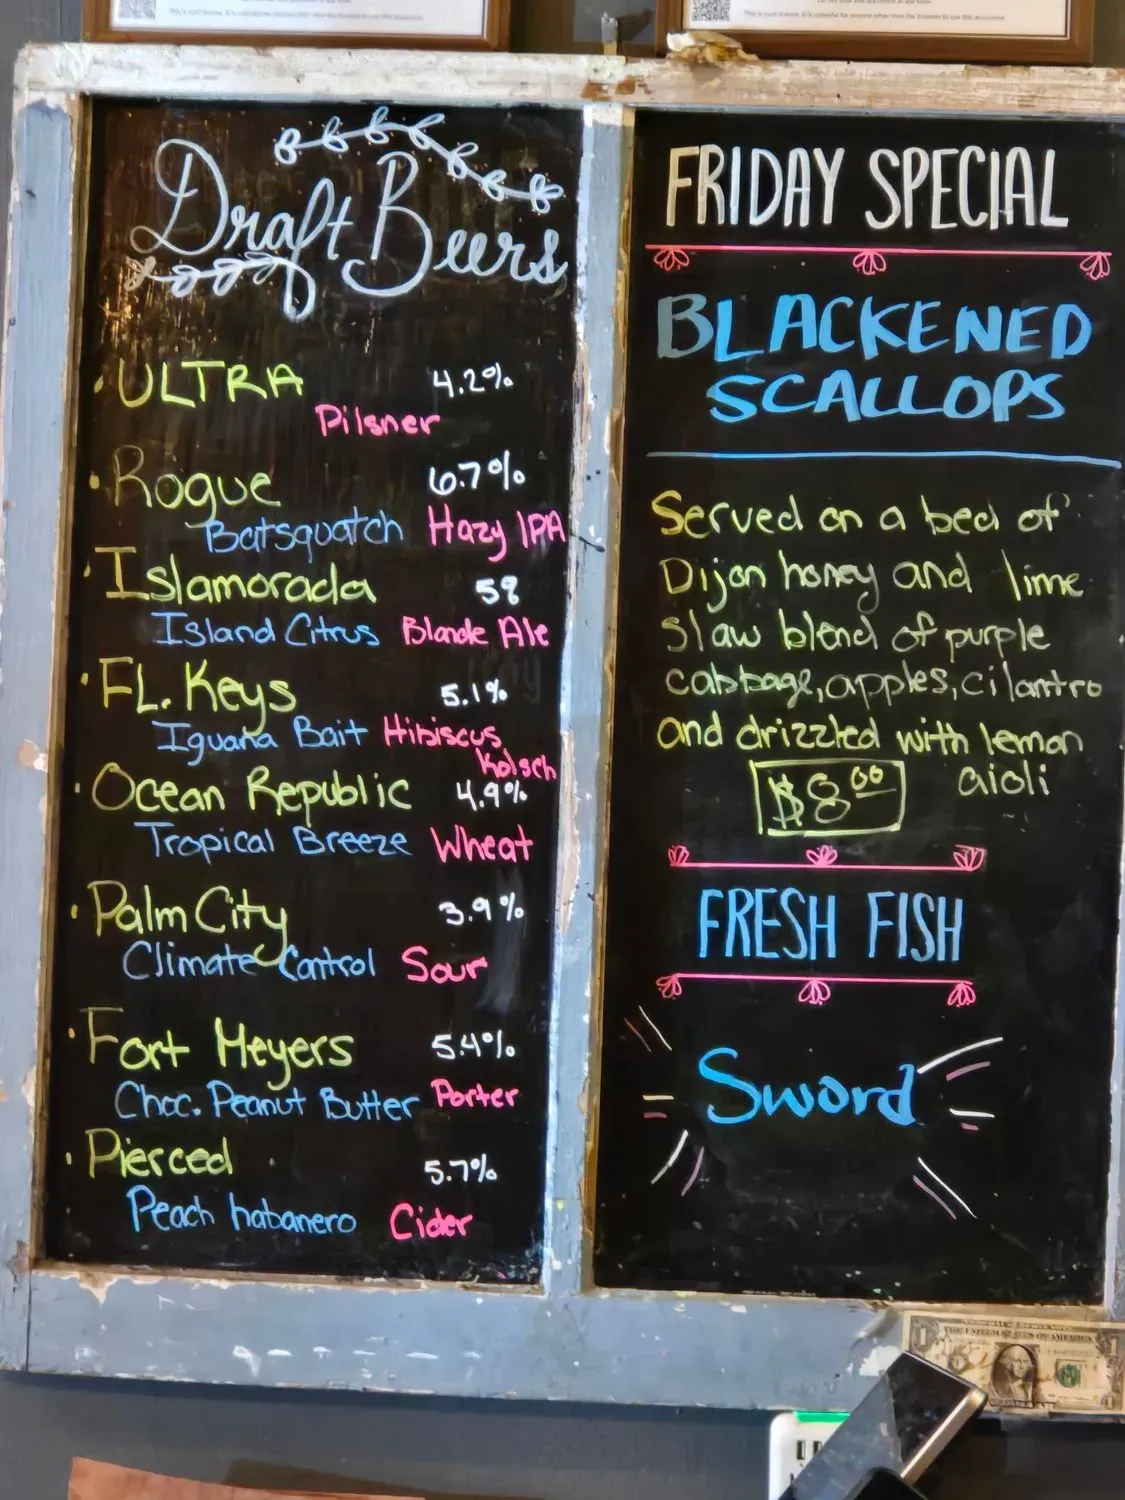 Draft Beers
• ULTRA 4.2%
Pilsner
• Rogue 6.7%
Batsquatch Hazy IPA
• Islamorada 58
Island Citrus Blonde Ale
• FL. Keys 5.1%
Iguana Bait Hibiscus
Kolsch
• Ocean Republic 4.9%
Tropical Breeze Wheat
• Palm City 3.9%
Climate Control Sour
• Fort Meyers 5.4%
Choc. Peanut Butter Porter
• Pierced 5.7%
Peach habanero Cider
FRIDAY SPECIAL
BLACKENED
SCALLOPS
Served on a bed of
Dijon honey and lime
slaw blend of purple
cabbage, apples, cilantro
and drizzled with lemon
aioli
$8.00
FRESH FISH
Sword
THE UNITED STATES OF AMERICA
1
1